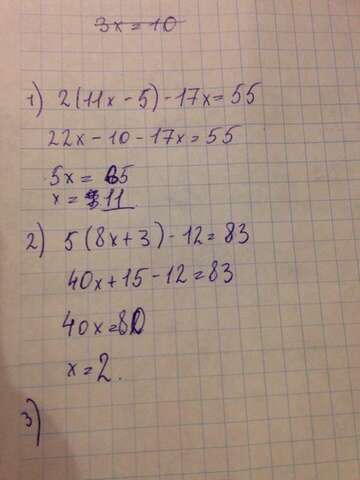 3x=10
1) 2(11x-5)-17x=55
22x-10-17x=55
5x=65
x=11
2) 5(8x+3)-12=83
40x+15-12=83
40x=80
x=2.
3)